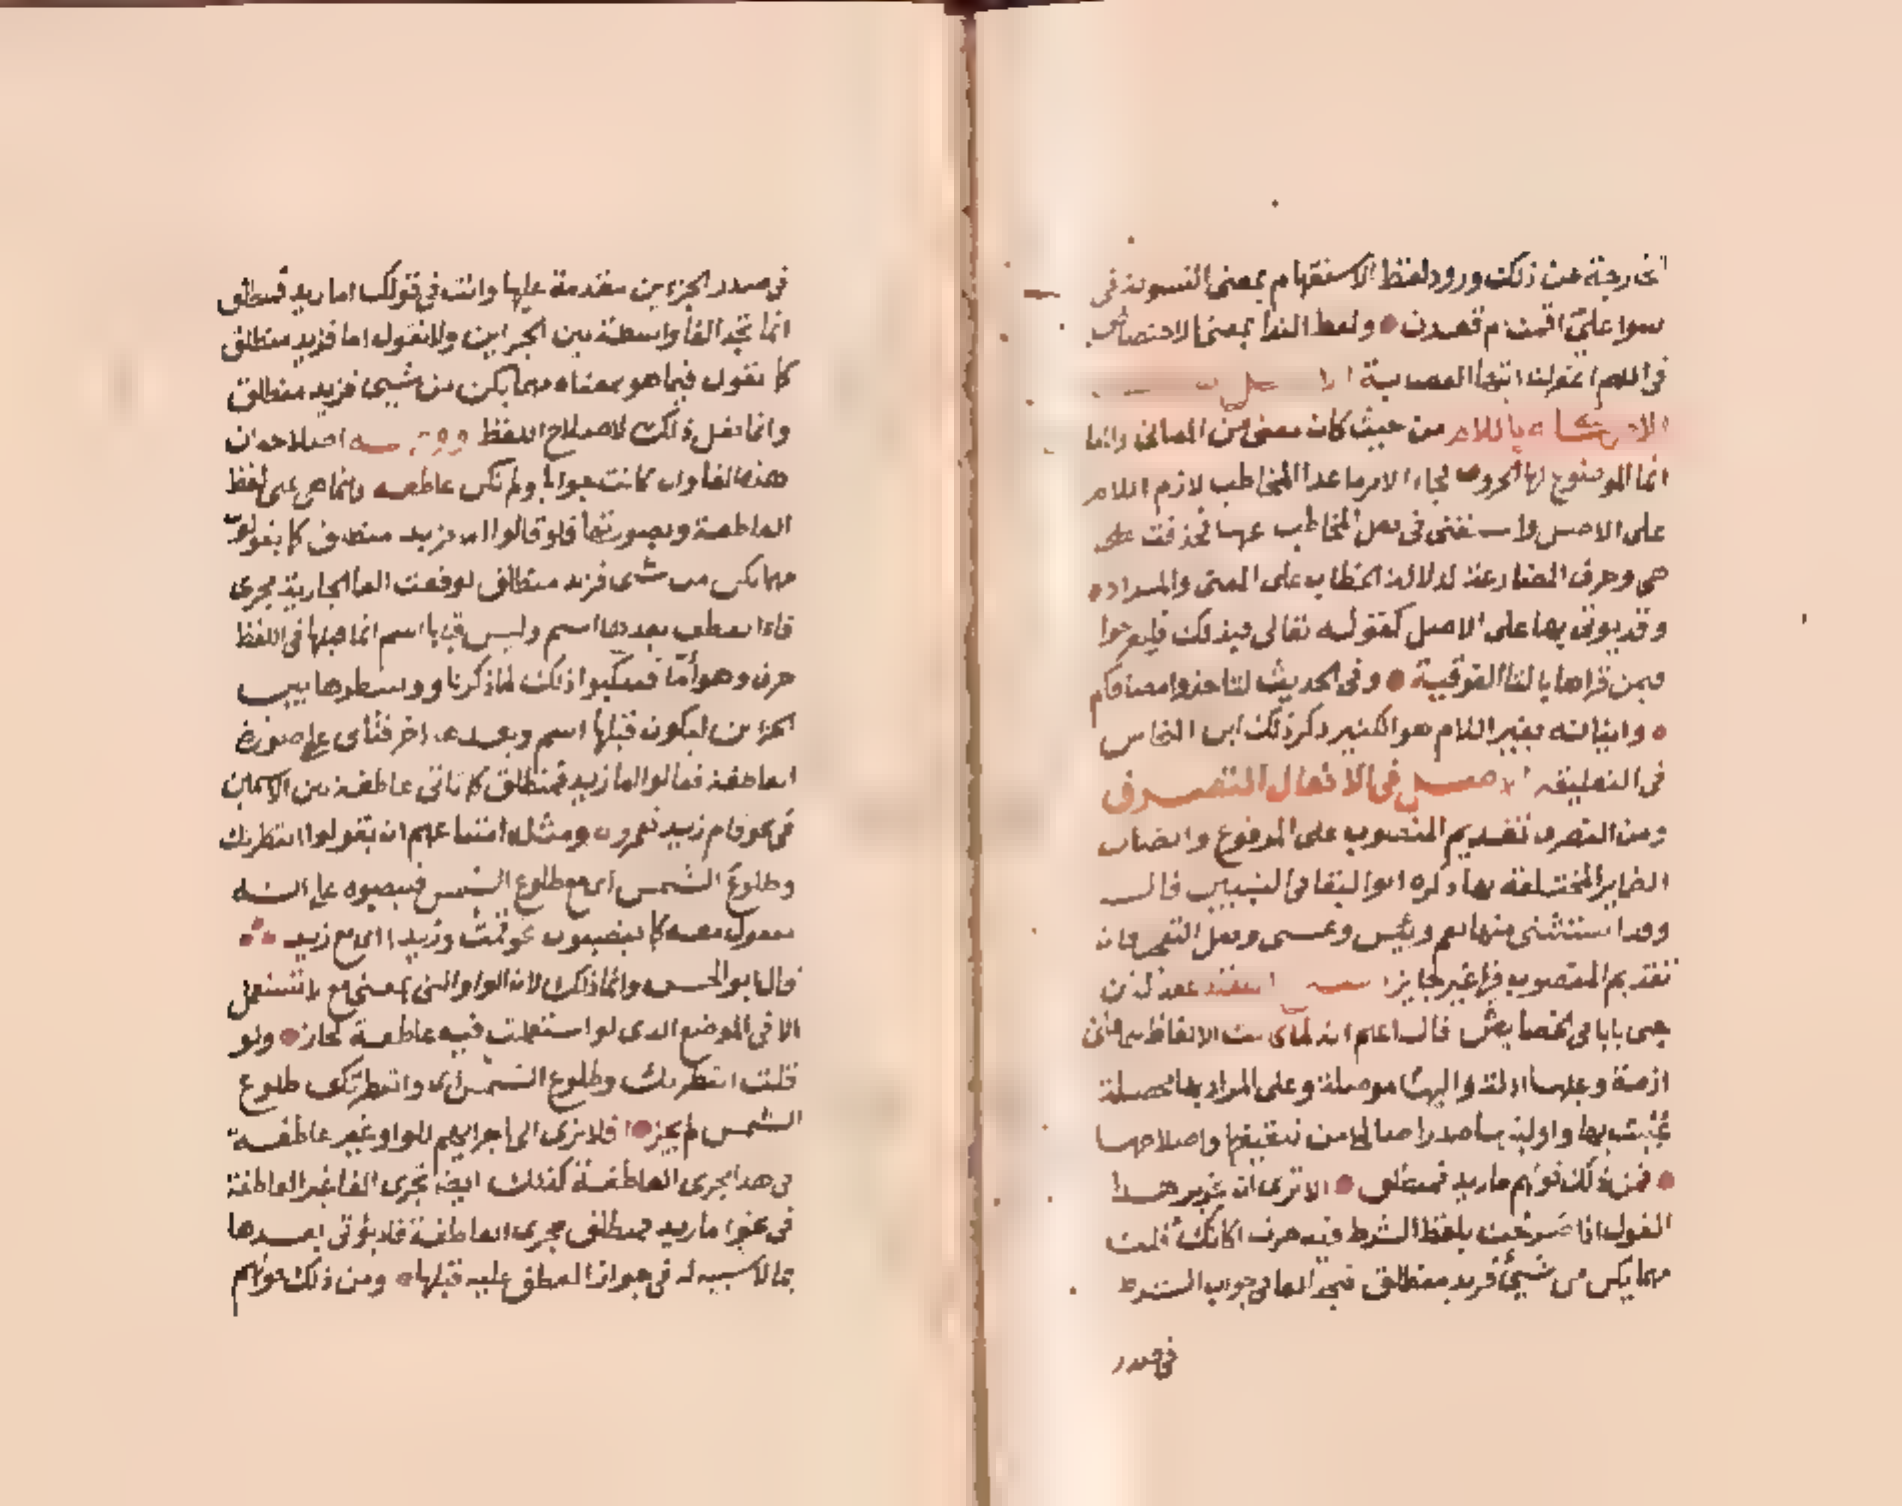 الخارجة عن ذلك ورود لفظ الاستفهام بمعنى التسوية في
سوا علي اقمت ام قعدت ولفظ الندا بمعنى الاختصاص
في اللهم اغفر لنا ايتها العصابة الاصل
الامر باللام من حيث كان معنى من المعاني وانما
انما الموضوع لها الحروف فجاء الامر ما عدا المخاطب لازم اللام
على الاصل واستغنى في فعل المخاطب عنها فحذفت
هي وحرف المضارعة لدلالة الخطاب على المعنى والمراد
وقد يوتى بها على الاصل كقوله تعالى فبذلك فليفرحوا
فيمن قراها بالتا الفوقية وفي الحديث لتاخذوا مصافكم
واتيانه بغير اللام هو الكثير ذكر ذلك ابن النحاس
في التعليقة الاصل في الافعال التصرف
ومن التصرف تقديم المنصوب على المرفوع واتصال
الضماير المختلفة بها ذكره ابو البقا في التبيين قال
وقد استثنى منها نعم وبئس وعسى وفعل التعجب فان
تقديم المنصوب فيها غير جايز عقد له ابن
جني بابا في الخصايص قال اعلم انه لما كانت الالفاظ للمعاني
ازمة وعليها ادلة واليها موصلة وعلى المراد بها محصلة
عنيت بها واولتها صدرا صالحا من تثقيفها واصلاحها
فمن ذلك قولهم اما زيد فمنطلق الا ترى ان تحرير هذا
القول اذا صرحت بلفظ الشرط فيه صرت الى انك قلت
مهما يكن من شيئ فزيد منطلق فتجد الفا في جواب الشرط
في صدر
في صدر الجزءين مقدمة عليها وانت في قولك اما زيد فمنطلق
انما تجد الفا واسطة بين الجزاين ولا تقول اما فزيد منطلق
كما تقول فيما هو بمعناه مهما يكن من شيئ فزيد منطلق
وانما فعل ذلك لاصلاح اللفظ ووجه اصلاحه ان
هذه الفا وان كانت جوابا ولم تكن عاطفة فانما هي على لفظ
العاطفة وبصورتها فلو قالوا اما فزيد منطلق كما يقولون
مهما يكن من شى فزيد منطلق لوقعت الفا الجارية مجرى
فاء العطف بعدها اسم وليس قبلها اسم انما قبلها في اللفظ
حرف وهو أمّا فتنكبوا ذلك لما ذكرنا ووسطوها بين
الجزاين ليكون قبلها اسم وبعدها اخر فتاتى على صورة
العاطفة فقالوا اما زيد فمنطلق كما تاتى عاطفة بين الاسمين
في نحو قام زيد فعمرو ومثله امتناعهم ان يقولوا انتظرتك
وطلوع الشمس اى مع طلوع الشمس فينصبوه على انه
مفعول معه كما ينصبون نحو قمت وزيدا اى مع زيد
قال ابو الحسن وانما ذلك لان الواو التى بمعنى مع لا تستعمل
الا في الموضع الذى لو استعملت فيه عاطفة لجاز ولو
قلت انتظرتك وطلوع الشمس اى وانتظرتك طلوع
الشمس لم يجز افلا ترى الى اجرايهم للواو غير عاطفة
في هذا مجرى العاطفة كذلك ايضا تجرى الفا غير العاطفة
في نحو اما زيد فمنطلق مجرى العاطفة فلا يؤتى بعدها
بما لا سبيه له في جواز العطف عليه قبلها ومن ذلك قولهم